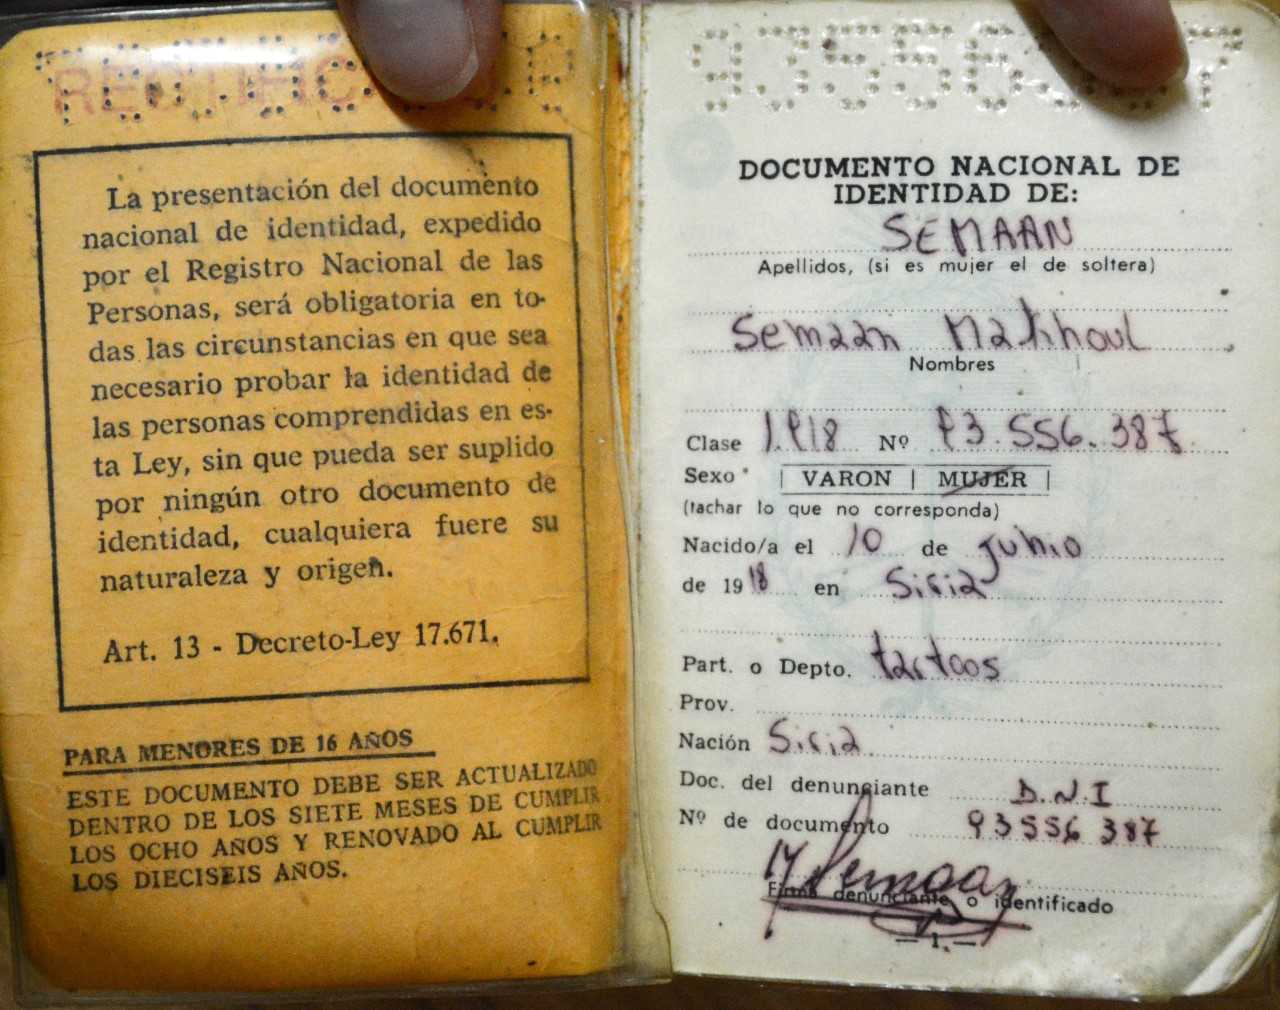 La presentación del documento
nacional de identidad, expedido
por el Registro Nacional de las
Personas, será obligatoria en to-
das las circunstancias en que sea
necesario probar la identidad de
las personas comprendidas en es-
ta Ley, sin que pueda ser suplido
por ningún otro documento de
identidad, cualquiera fuere su
naturaleza y origen.
Art. 13 - Decreto-Ley 17.671.
PARA MENORES DE 16 AÑOS
ESTE DOCUMENTO DEBE SER ACTUALIZADO
DENTRO DE LOS SIETE MESES DE CUMPLIR
LOS OCHO AÑOS Y RENOVADO AL CUMPLIR
LOS DIECISEIS AÑOS.
DOCUMENTO NACIONAL DE
IDENTIDAD DE:
SEMAAN
Apellidos, (si es mujer el de soltera)
Semaan Makhoul
Nombres
Clase 1.918 Nº 93.556.387
Sexo | VARON | MUJER |
(tachar lo que no corresponda)
Nacido/a el 10 de Junio
de 1918 en Siria
Part. o Depto. tartoos
Prov.
Nación Siria
Doc. del denunciante D.N.I
Nº de documento 93556387
M Semaan
Firma denunciante o identificado
— 1.—